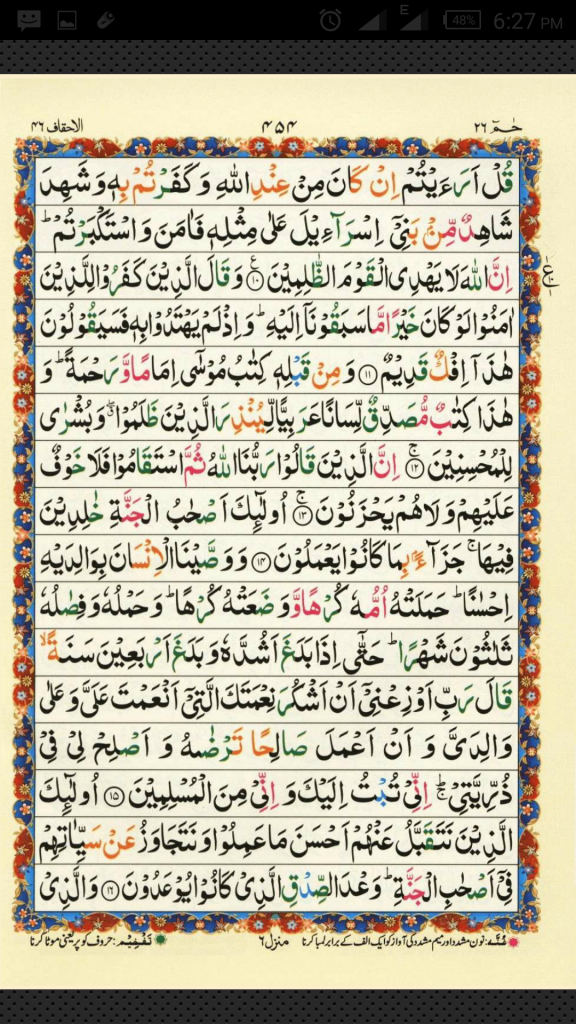 E 48% 6:27 PM
حٰمٓ ٢٦ ٤٥٤ الاحقاف ٤٦
قُلْ اَرَءَيْتُمْ اِنْ كَانَ مِنْ عِنْدِ اللّٰهِ وَكَفَرْتُمْ بِهٖ وَشَهِدَ
شَاهِدٌ مِّنْۢ بَنِيْٓ اِسْرَآءِيْلَ عَلٰى مِثْلِهٖ فَاٰمَنَ وَاسْتَكْبَرْتُمْ ؕ
اِنَّ اللّٰهَ لَا يَهْدِى الْقَوْمَ الظّٰلِمِيْنَ ۝۱۰ وَقَالَ الَّذِيْنَ كَفَرُوْا لِلَّذِيْنَ
اٰمَنُوْا لَوْ كَانَ خَيْرًا مَّا سَبَقُوْنَاۤ اِلَيْهِ ؕ وَاِذْ لَمْ يَهْتَدُوْا بِهٖ فَسَيَقُوْلُوْنَ
هٰذَاۤ اِفْكٌ قَدِيْمٌ ۝۱۱ وَمِنْ قَبْلِهٖ كِتٰبُ مُوْسٰٓى اِمَامًا وَّرَحْمَةً ؕ وَ
هٰذَا كِتٰبٌ مُّصَدِّقٌ لِّسَانًا عَرَبِيًّا لِّيُنْذِرَ الَّذِيْنَ ظَلَمُوْا ۖ وَبُشْرٰى
لِلْمُحْسِنِيْنَ ۝۱۲ اِنَّ الَّذِيْنَ قَالُوْا رَبُّنَا اللّٰهُ ثُمَّ اسْتَقَامُوْا فَلَا خَوْفٌ
عَلَيْهِمْ وَلَا هُمْ يَحْزَنُوْنَ ۝۱۳ اُولٰٓئِكَ اَصْحٰبُ الْجَنَّةِ خٰلِدِيْنَ
فِيْهَا ۚ جَزَآءًۢ بِمَا كَانُوْا يَعْمَلُوْنَ ۝۱۴ وَوَصَّيْنَا الْاِنْسَانَ بِوَالِدَيْهِ
اِحْسٰنًا ؕ حَمَلَتْهُ اُمُّهٗ كُرْهًا وَّوَضَعَتْهُ كُرْهًا ؕ وَحَمْلُهٗ وَفِصٰلُهٗ
ثَلٰثُوْنَ شَهْرًا ؕ حَتّٰٓى اِذَا بَلَغَ اَشُدَّهٗ وَبَلَغَ اَرْبَعِيْنَ سَنَةً ۙ
قَالَ رَبِّ اَوْزِعْنِيْٓ اَنْ اَشْكُرَ نِعْمَتَكَ الَّتِيْٓ اَنْعَمْتَ عَلَيَّ وَعَلٰى
وَالِدَيَّ وَ اَنْ اَعْمَلَ صَالِحًا تَرْضٰىهُ وَ اَصْلِحْ لِيْ فِيْ
ذُرِّيَّتِيْ ۚ اِنِّيْ تُبْتُ اِلَيْكَ وَاِنِّيْ مِنَ الْمُسْلِمِيْنَ ۝۱۵ اُولٰٓئِكَ
الَّذِيْنَ نَتَقَبَّلُ عَنْهُمْ اَحْسَنَ مَا عَمِلُوْا وَنَتَجَاوَزُ عَنْ سَيِّاٰتِهِمْ
فِيْٓ اَصْحٰبِ الْجَنَّةِ ؕ وَعْدَ الصِّدْقِ الَّذِيْ كَانُوْا يُوْعَدُوْنَ ۝۱۶ وَالَّذِيْ
غنّه: نون مشدد اور میم مشدد کی آواز کو ایک الف کے برابر لمبا کرنا منزل ٦ تفخیم: حروف کو پر یعنی موٹا کرنا